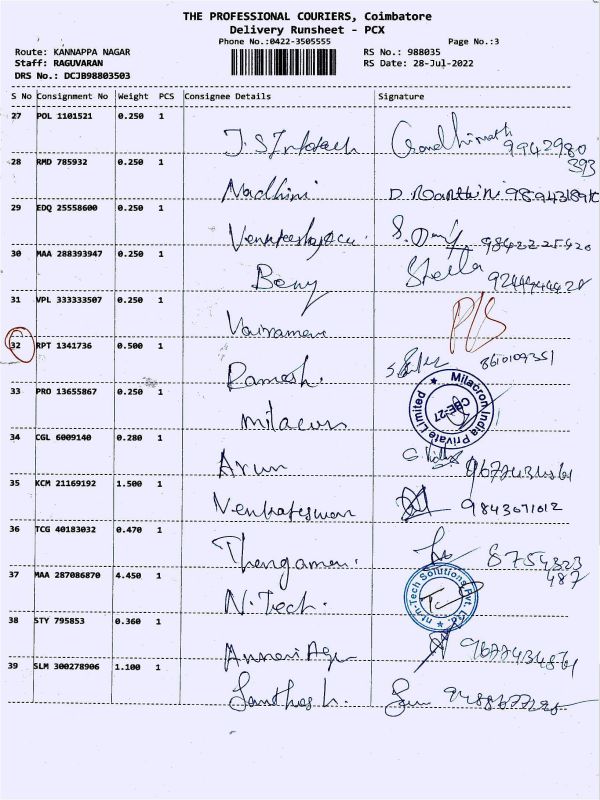 THE PROFESSIONAL COURIERS, Coimbatore
Delivery Runsheet - PCX
Phone No.:0422-3505555 Page No.:3
Route: KANNAPPA NAGAR RS No.: 988035
Staff: RAGUVARAN RS Date: 28-Jul-2022
DRS No.: DCJB98803503
S No Consignment No Weight PCS Consignee Details Signature
27 POL 1101521 0.250 1
J.S Infotech 9942980
393
28 RMD 785932 0.250 1
Nadhini
29 EDQ 25558600 0.250 1
30 MAA 288393947 0.250 1
Beny Stella
31 VPL 333333507 0.250 1
32 RPT 1341736 0.500 1
Ramesh. 8610109351
33 PRO 13655867 0.250 1
Milacron Milacron India Private Limited CBE-27
34 CGL 6009140 0.280 1
Arun
35 KCM 21169192 1.500 1
Venkateswaran 9843071012
36 TCG 40183032 0.470 1
Thengamani. 8754323
487
37 MAA 287086870 4.450 1
N.Tech. n-Tech Solutions Pvt. Ltd.
38 STY 795853 0.360 1
39 SLM 300278906 1.100 1
Santhosh.